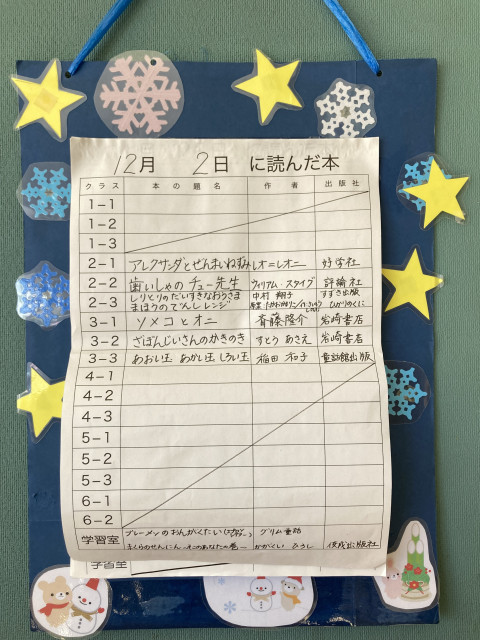 12月 2日 に読んだ本
クラス 本の題名 作者 出版社
1−1
1−2
1−3
2−1 アレクサンダとぜんまいねずみ レオ=レオニ 好学社
2−2 歯いしゃのチュー先生 ウィリアム・スタイグ 評論社
2−3 しりとりのだいすきなおうさま 中村翔子 すずき出版
まほうのでんしレンジ ひかりのくに
3−1 ソメコとオニ 斉藤隆介 岩崎書店
3−2 ざぼんじいさんのかきのき すとうあさえ 岩崎書店
3−3 あおい玉 あかい玉 しろい玉 稲田和子 童話館出版
4−1
4−2
4−3
5−1
5−2
5−3
6−1
6−2
学習室 ブレーメンのおんがくたい グリム童話
まくらのせんにん かがくいひろし 佼成出版社
学習室